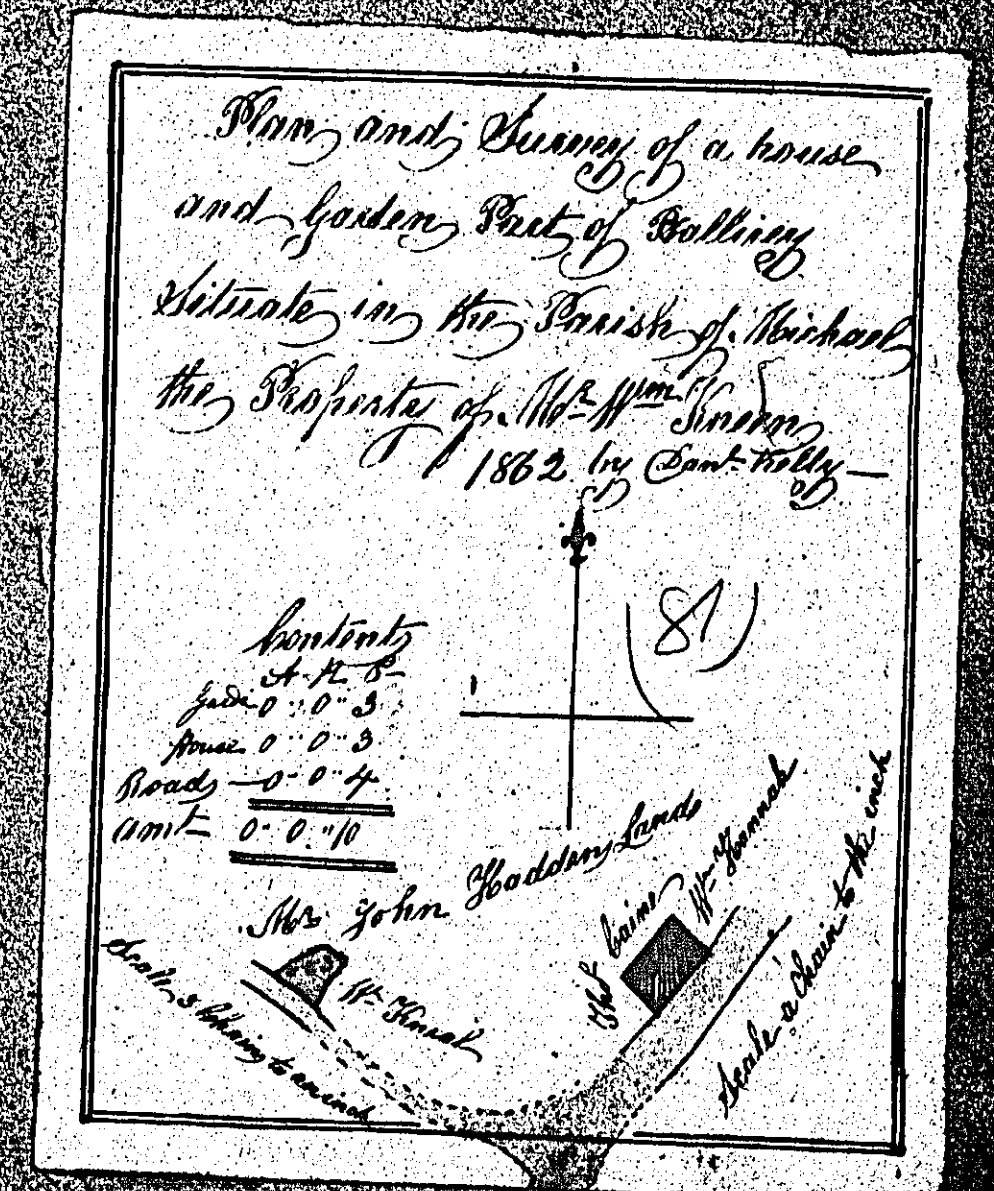 Plan and Survey of a house
and Garden Part of
Situate in the Parish of Michael
the Property of Mr Wm
1862 by Danl Kelly
(87)
Contents
A R P
0 " 0 " 3
House 0 " 0 " 3
Roads 0 " 0 " 4
Amt 0 " 0 " 10
Mr John Lands
Thos Caine
Wm
Wm
Scale 2 Chains to an inch
Scale a Chain to the inch